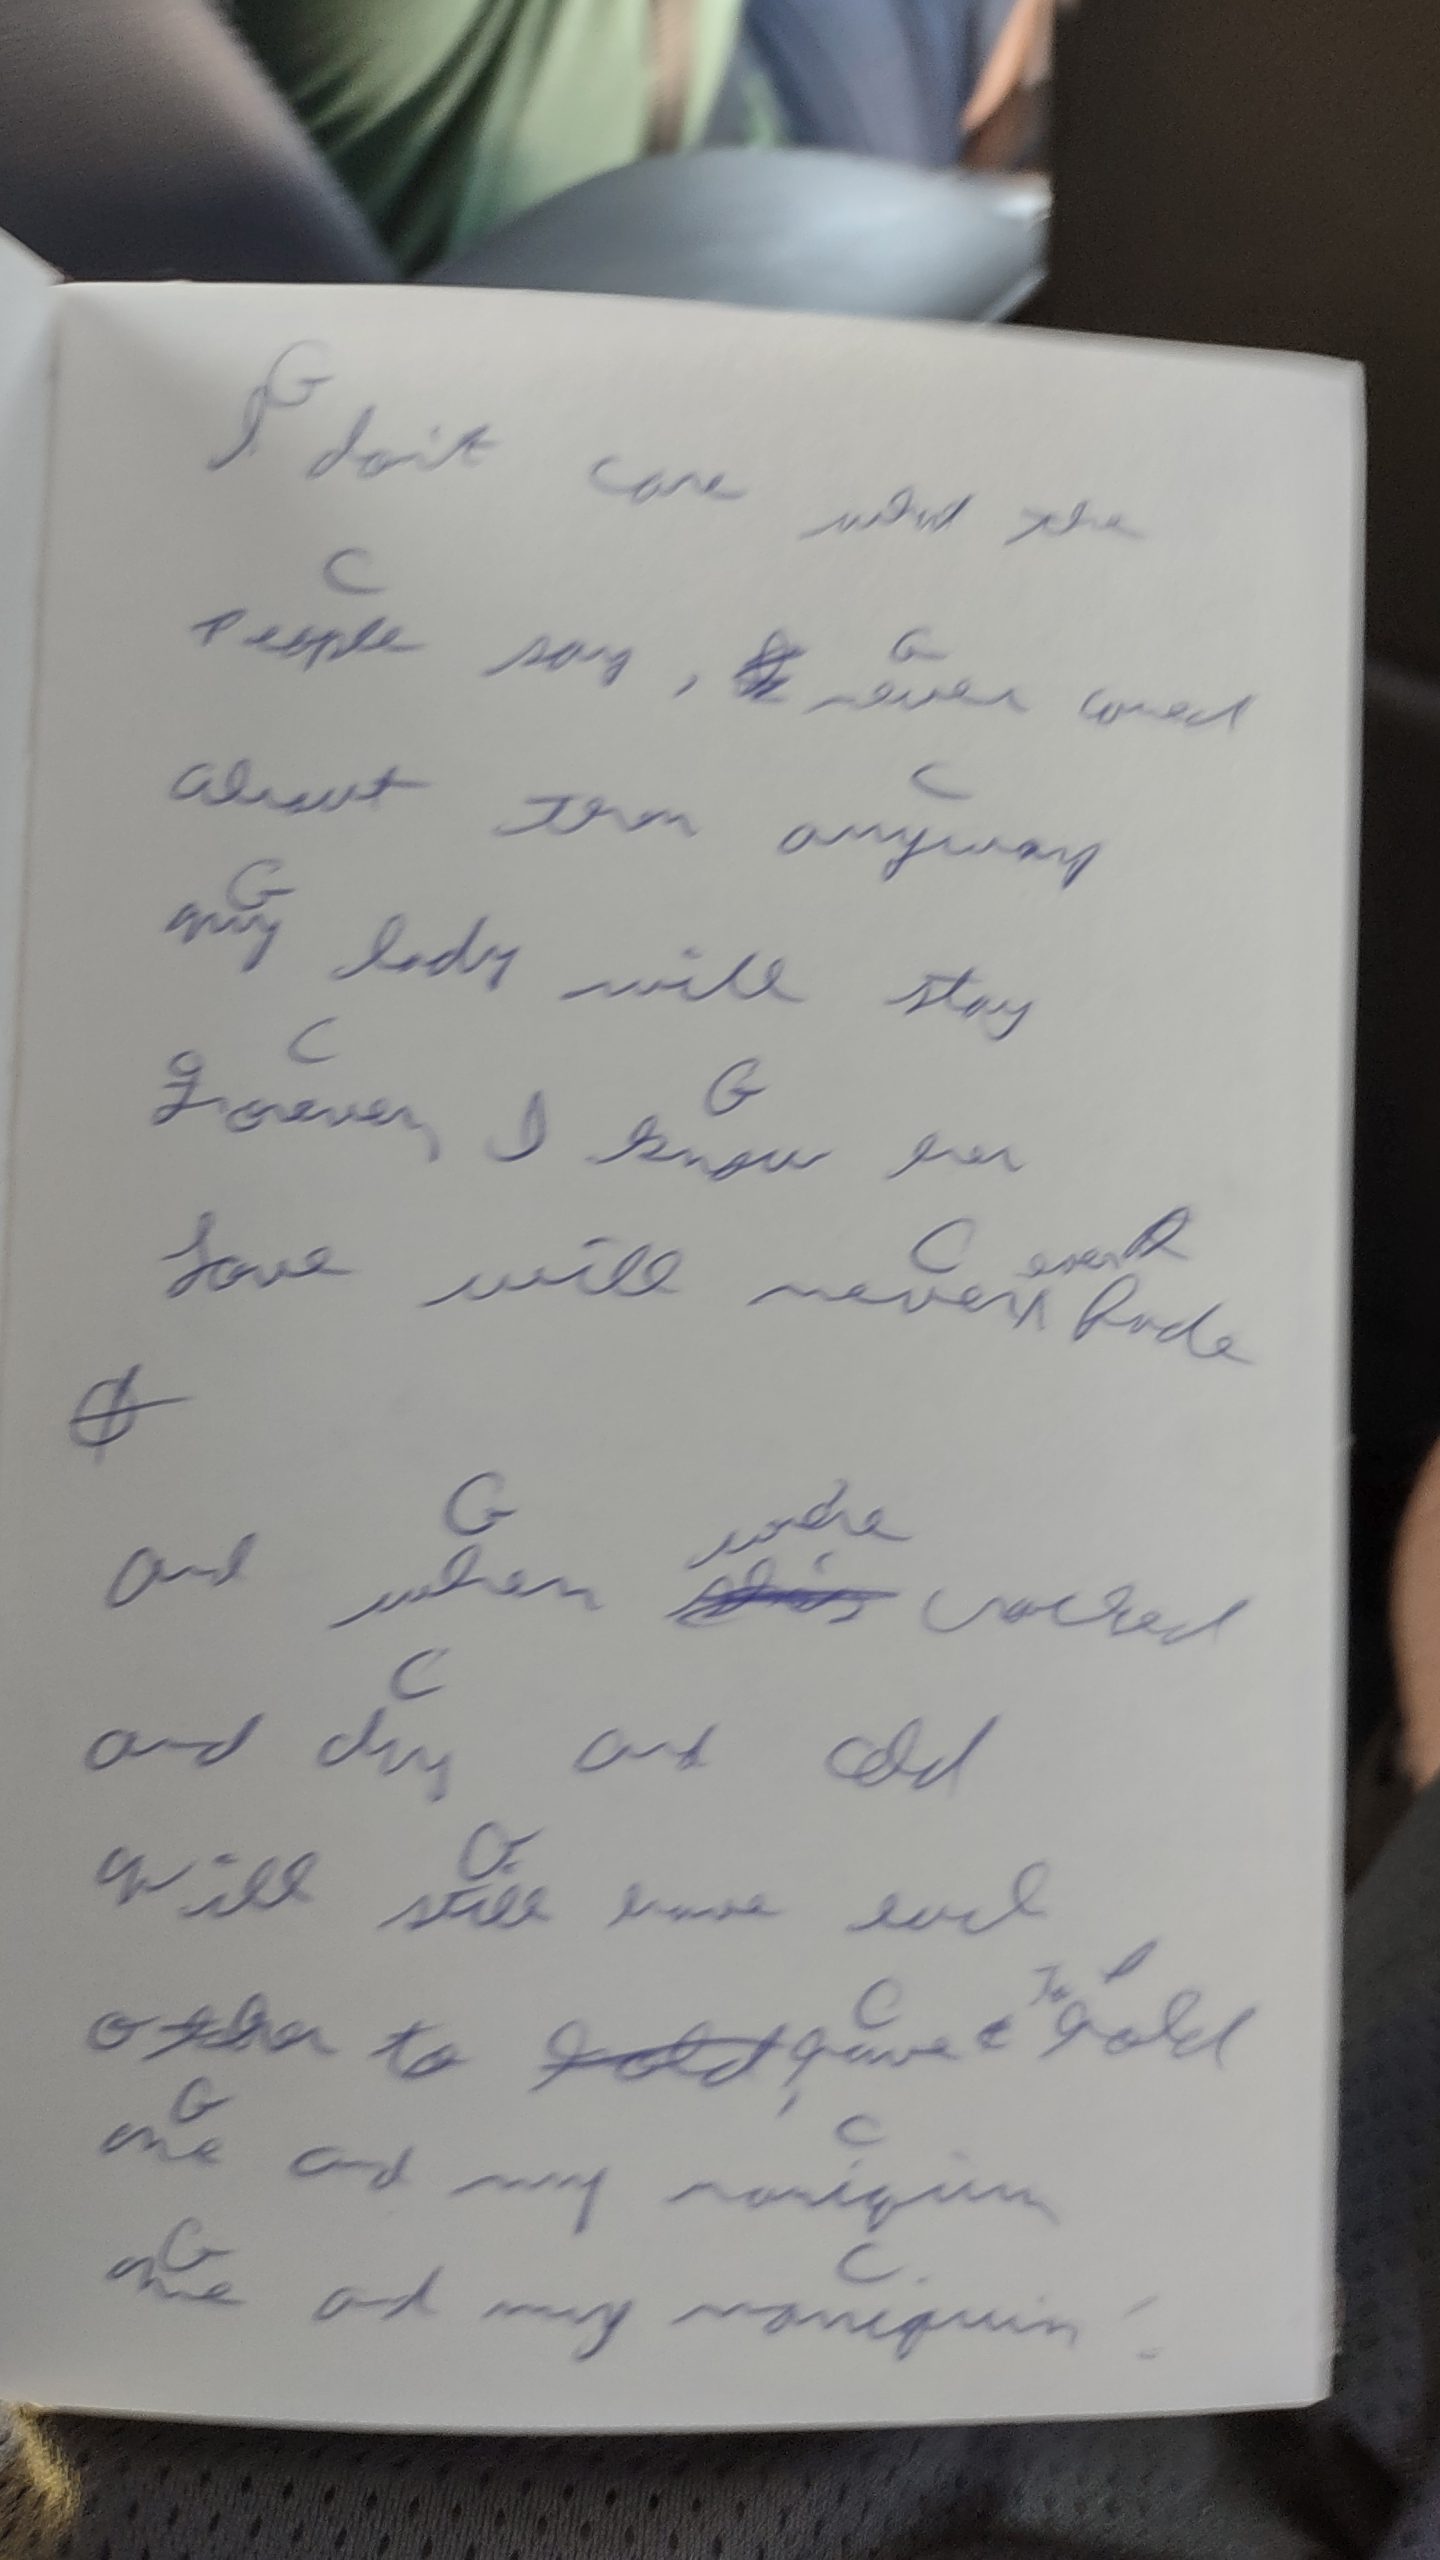 G
I don't care what the
C
People say, G never cared
about them C anyway
G
my lady will stay
C G
Forever, I know her
C ever
Love will never fade
G were
and when cracked
C
and dry and cold
G
Will still have each
C To
other to have hold
G C
me and my maniquin
G C.
me and my maniquin!